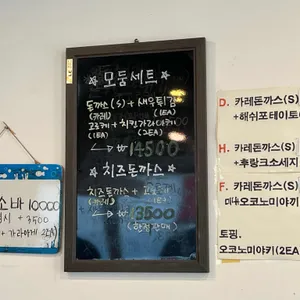 ☆ 모둠세트 ☆
돈까스(S) + 새우튀김
(카레) (1EA)
고로케 + 치킨가라아게
(1EA) (2EA)
14500
☆ 치즈돈까스 ☆
치즈돈까스 +
13500
(한정판매)
소바 10000
+ 3500
+ 가라아게 2EA
D. 카레돈까스(S)
+해쉬포테이토
H. 카레돈까스(S)
+후랑크소세지
F. 카레돈까스(S)
미니오코노미야키
토핑.
오코노미야키(2EA)